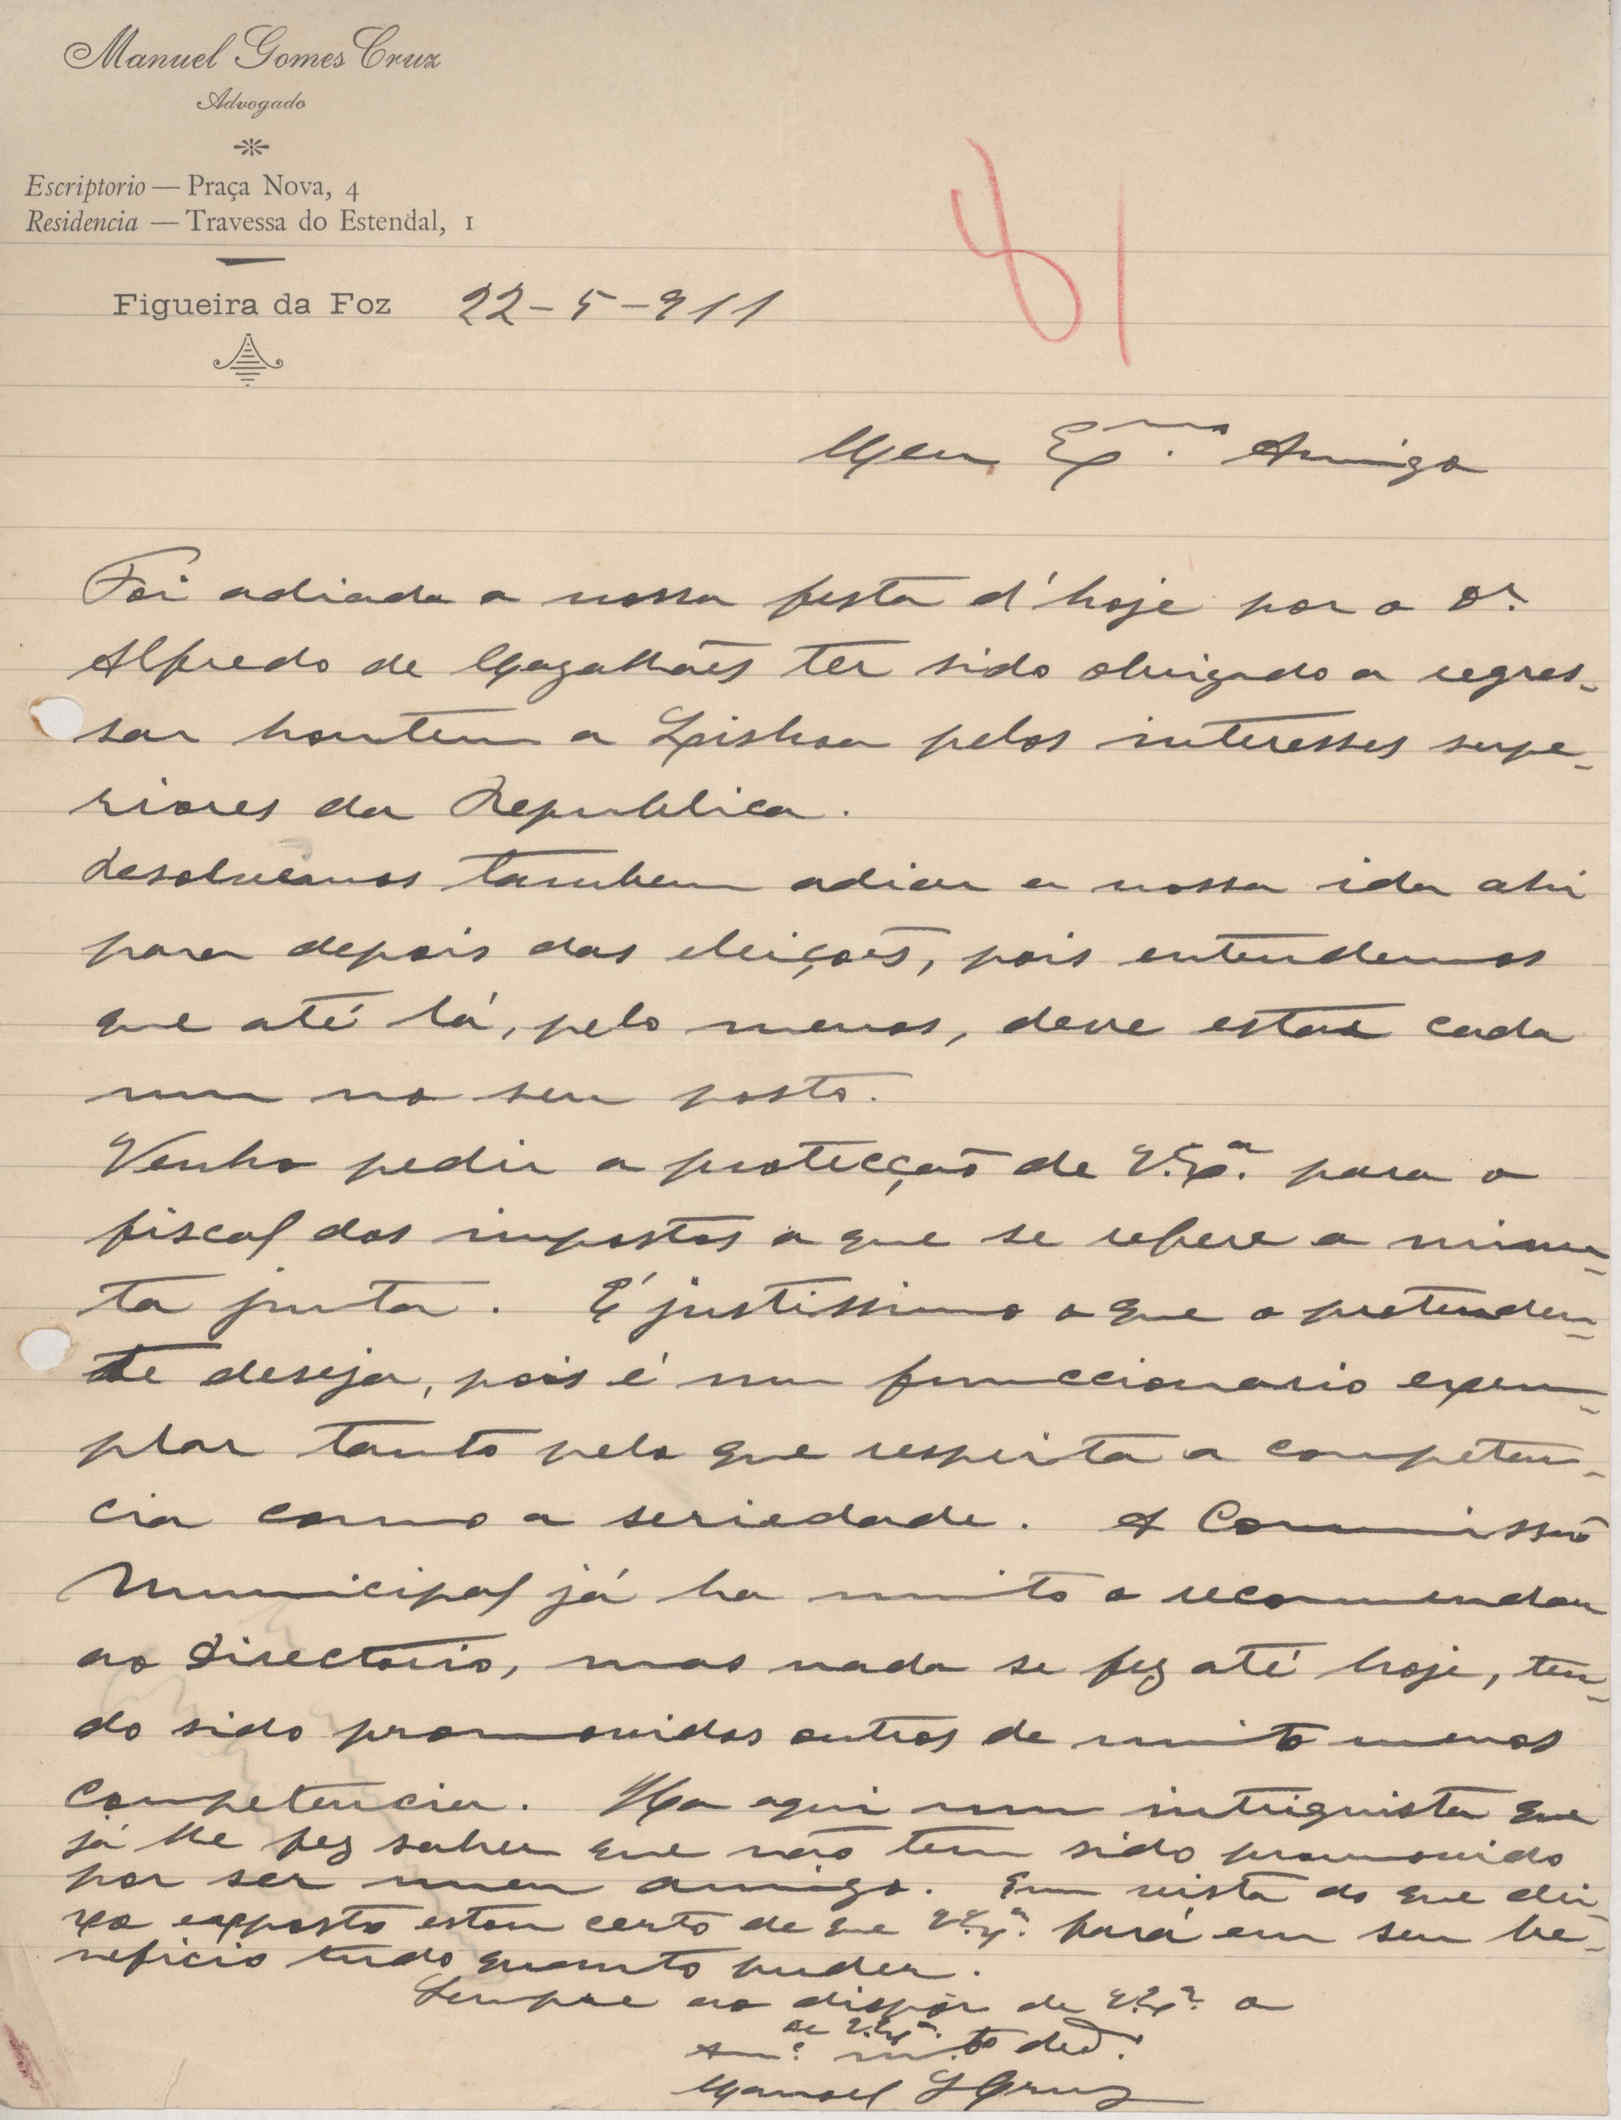 Manuel Gomes Cruz
Advogado
Escriptorio — Praça Nova, 4
Residencia — Travessa do Estendal, 1
Figueira da Foz 22-5-911
81
Meu Exmo. Amigo
Foi adiada a nossa festa d'hoje por o Dr.
Alfredo de Magalhães ter sido obrigado a regres-
sar hontem a Lisboa pelos interesses supe-
riores da Republica.
Resolvemos tambem adiar a nossa ida ahi
para depois das eleições, pois entendemos
que até lá, pelo menos, deve estar cada
um no seu posto.
Venho pedir a protecção de V. Exª. para o
fiscal dos impostos a que se refere a minu-
ta junta. É justissimo o que o preten­den-
te deseja, pois é um funccionario exem-
plar tanto pelo que respeita a competen-
cia como a seriedade. A Commissão
Municipal já ha muito o recommendou
ao Directorio, mas nada se fez até hoje, ten-
do sido promovidos outros de muito menos
competencia. Ha aqui um intriguista que
já lhe fez saber que não tem sido promovido
por ser meu amigo. Em vista do que dei-
xo exposto estou certo de que V. Exª. fará em seu be-
neficio tudo quanto puder.
Sempre ao dispôr de V. Exª. o
de V. Exª.
Amº. mto. dedº.
Manoel G Cruz